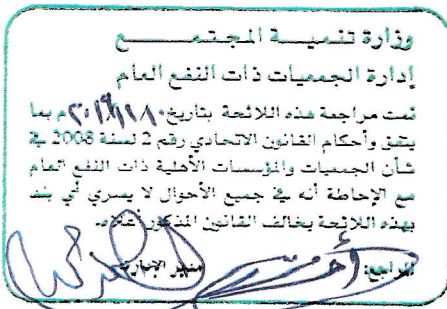 وزارة تنمية المجتمع
إدارة الجمعيات ذات النفع العام
تمت مراجعة هذه اللائحة بتاريخ م بما
يتفق وأحكام القانون الاتحادي رقم 2 لسنة 2008 في
شأن الجمعيات والمؤسسات الأهلية ذات النفع العام
مع الإحاطة أنه في جميع الأحوال لا يسري أي بند
بهذه اللائحة يخالف القانون المذكور أعلاه.
المراجع: مدير الإدارة